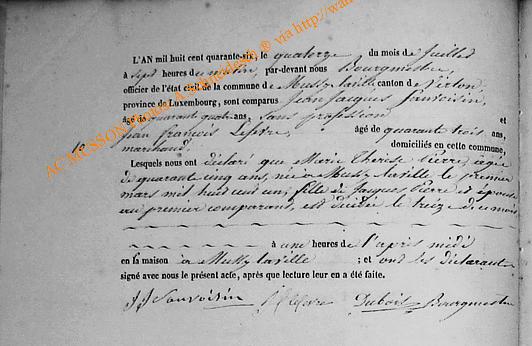 L'AN mil huit cent quarante-six, le quatorze du mois de Juillet
à sept heures du matin, par-devant nous Bourgmestre
officier de l'état civil de la commune de Mussy laville canton de Virton,
province de Luxembourg, sont comparus Jean Jacques Sauvoisin,
âgé de soixante quatre ans, sans profession et
10
Jean François Lefevre, âgé de quarante trois ans,
marchand, domiciliés en cette commune,
Lesquels nous ont déclaré que Marie Thérèse Pierre, agée
de quarante cinq ans, née à Mussy laville le premier
mars mil huit cent un, fille de Jacques Pierre et épouse
au premier comparant, est décédée le treize du mois
à une heures de l'après midi
en la maison à Mussy laville ; et ont les déclarants
signé avec nous le présent acte, après que lecture leur en a été faite.
JJ Sauvoisin Lefevre Dubois Bourgmestre
AC MUSSON Photos A.Schneidesch @ via http://wa